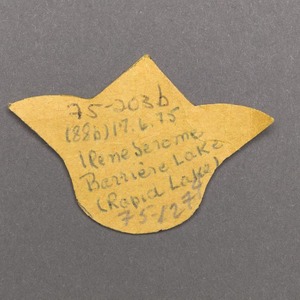 75-203b
(88b) 17.6.75
Irene Jerome
Barrière Lake
(Rapid Lake)
75/27